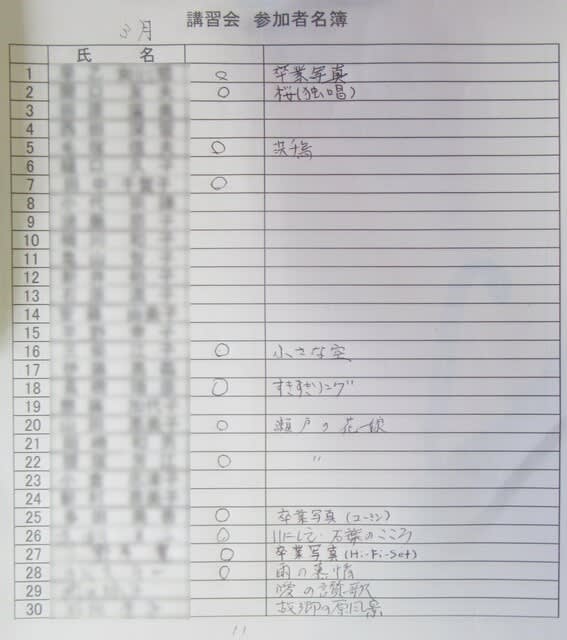 3月
講習会 参加者名簿
氏 名
1 ○ 卒業写真
2 ○ 桜(独唱)
3
4
5 ○
6
7 ○
8
9
10
11
12
13
14
15
16 ○ 小さな空
17
18 ○ すきずきソング
19
20 ○ 瀬戸の花嫁
21
22 ○ 〃
23
24
25 ○ 卒業写真(ユーミン)
26 ○ 石蕗のこころ
27 ○ 卒業写真(Hi-Fi-Set)
28 ○ 雨の慕情
29 愛の讃歌
30 故郷の原風景
11